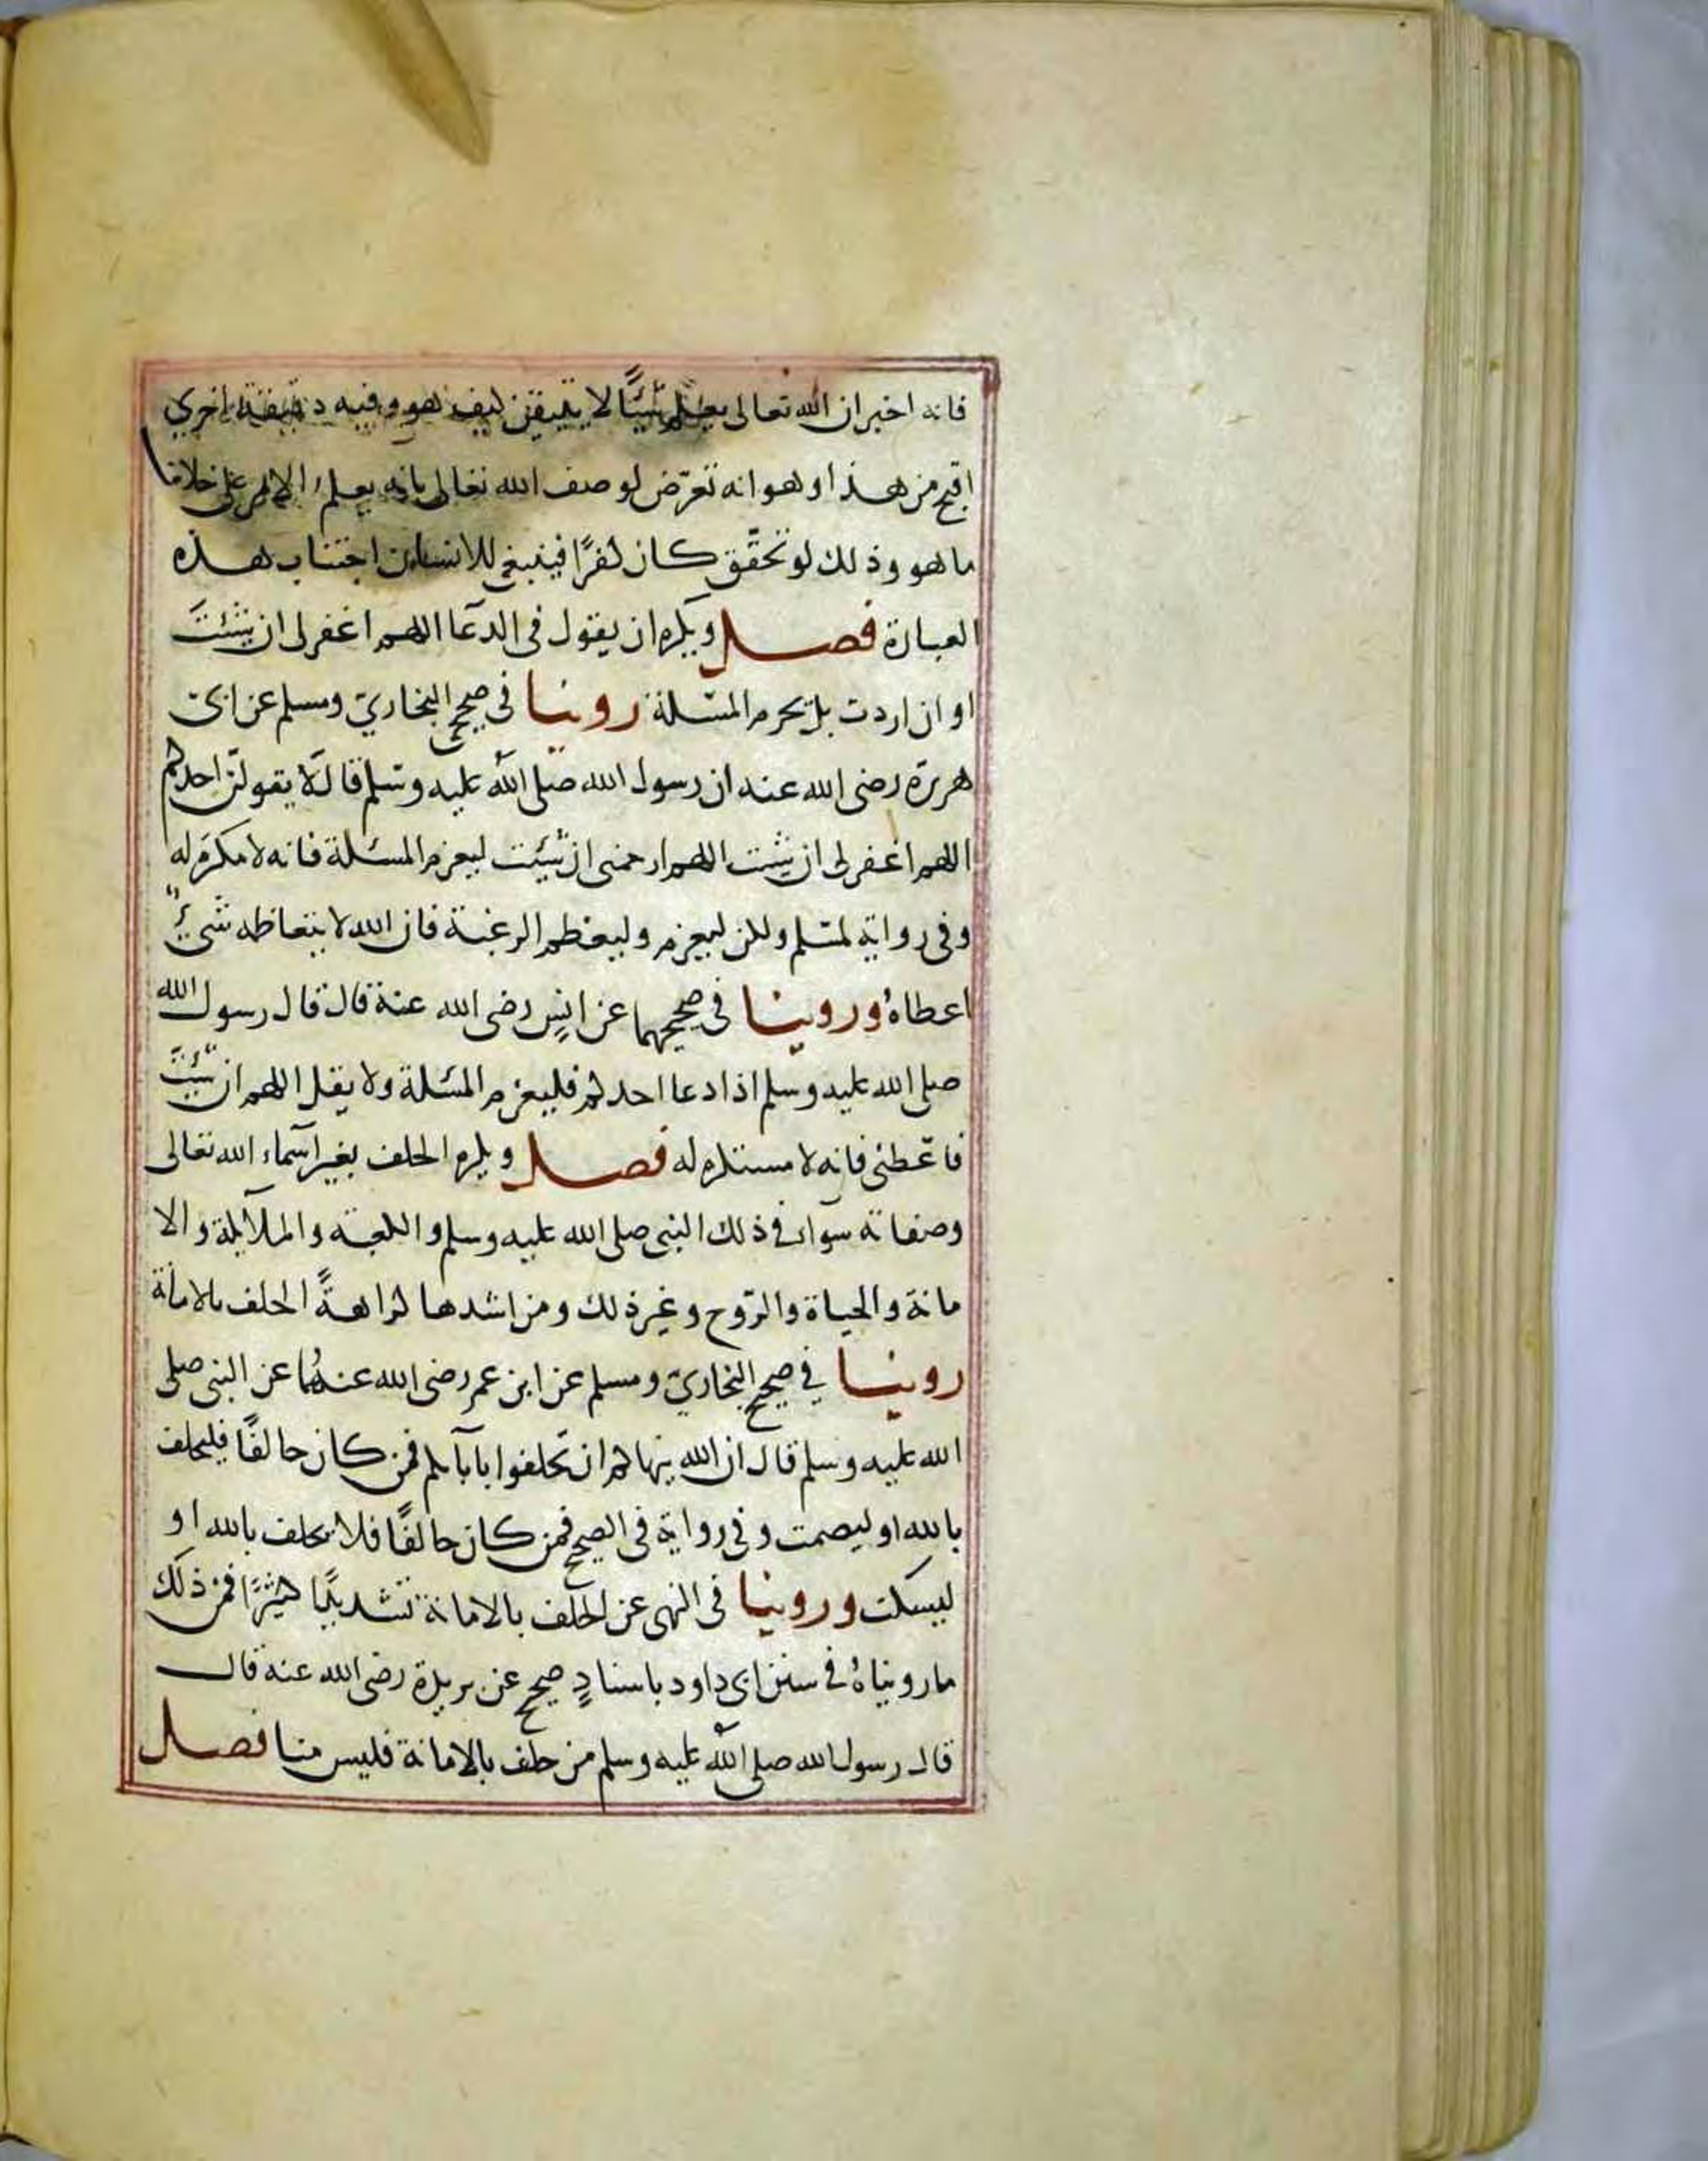 فانه اخبر ان الله تعالى يعلم شيئًا لا يتيقن كيف هو وفيه دقيقة اخري
اقبح من هذا وهو انه تعرّض لوصف الله تعالى بانه يعلم الامر على خلاف
ما هو وذلك لو تحقّق كان كفرًا فينبغي للانسان اجتناب هذه
العبارة فصل ويكره ان يقول في الدعا اللهم اغفر لى ان شئتَ
او ان اردت بل يحرم المسٔلة روينا في صحيح البخاريّ ومسلم عن ابى
هريرة رضى الله عنه ان رسول الله صلى الله عليه وسلم قال لا يقولنّ احدكم
اللهم اغفر لى ان شئت اللهم ارحمنى ان شئت ليعزم المسئلة فانه لا مكره له
وفى رواية لمسلم ولكن ليعزم وليعظم الرغبة فان الله لا يتعاظمه شيءٌ
اعطاهُ وروينا في صحيحهما عن انسٍ رضى الله عنه قال قال رسول الله
صلى الله عليه وسلم اذا دعا احدكم فليعزم المسئلة ولا يقل اللهم ان شئتَ
فاعطنى فانه لا مستكره له فصل ويكره الحلف بغير اسماء الله تعالى
وصفاته سواء في ذلك النبى صلى الله عليه وسلم والكعبة والملآيكة والا
مانة والحياة والرّوح وغير ذلك ومن اشدها كراهةً الحلف بالامانة
روينا في صحيح البخاريّ ومسلم عن ابن عمر رضى الله عنهُما عن النبى صلى
الله عليه وسلم قال ان الله ينهاكم ان تحلفوا بابآيكم فمن كان حالفًا فليحلف
بالله او ليصمت وفي رواية في الصحيح فمن كان حالفًا فلا يحلف بالله او
ليسكت وروينا فى النهى عن الحلف بالامانة تشديدًا كثيرًا فمن ذلك
ما رويناهُ في سنن ابى داود باسنادٍ صحيح عن بريدة رضى الله عنه قال
قال رسول الله صلى الله عليه وسلم من حلف بالامانة فليس منا فصل